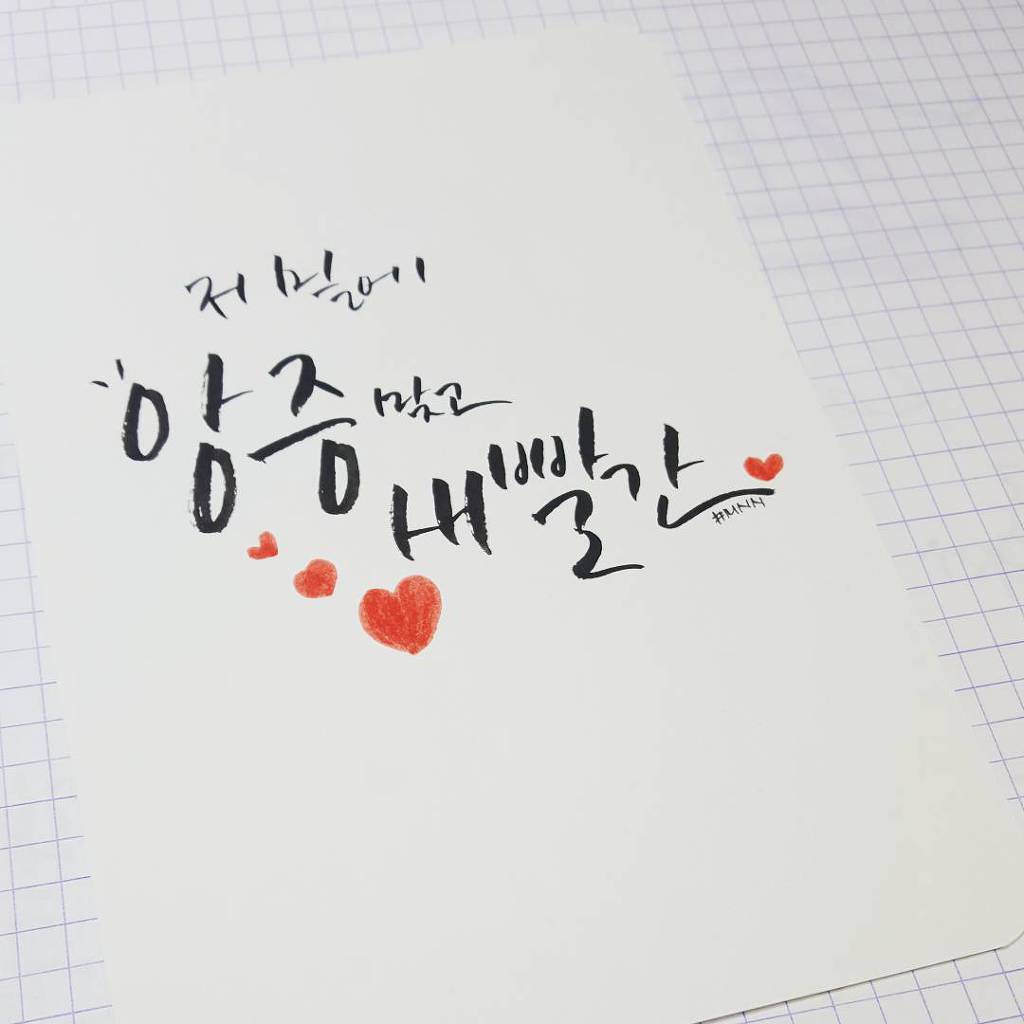 저 밑에
앙증맞고
새빨간
#MNN